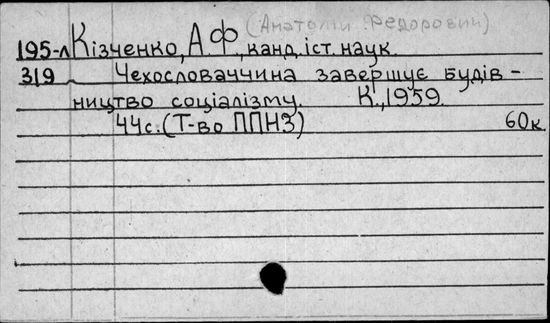 (Анатолій Федорович)
195-л Кізченко, А.Ф., канд. іст. наук.
319 Чехословаччина завершує будів-
ництво соціалізму. К., 1959.
44с. (Т-во ППНЗ) 60к.